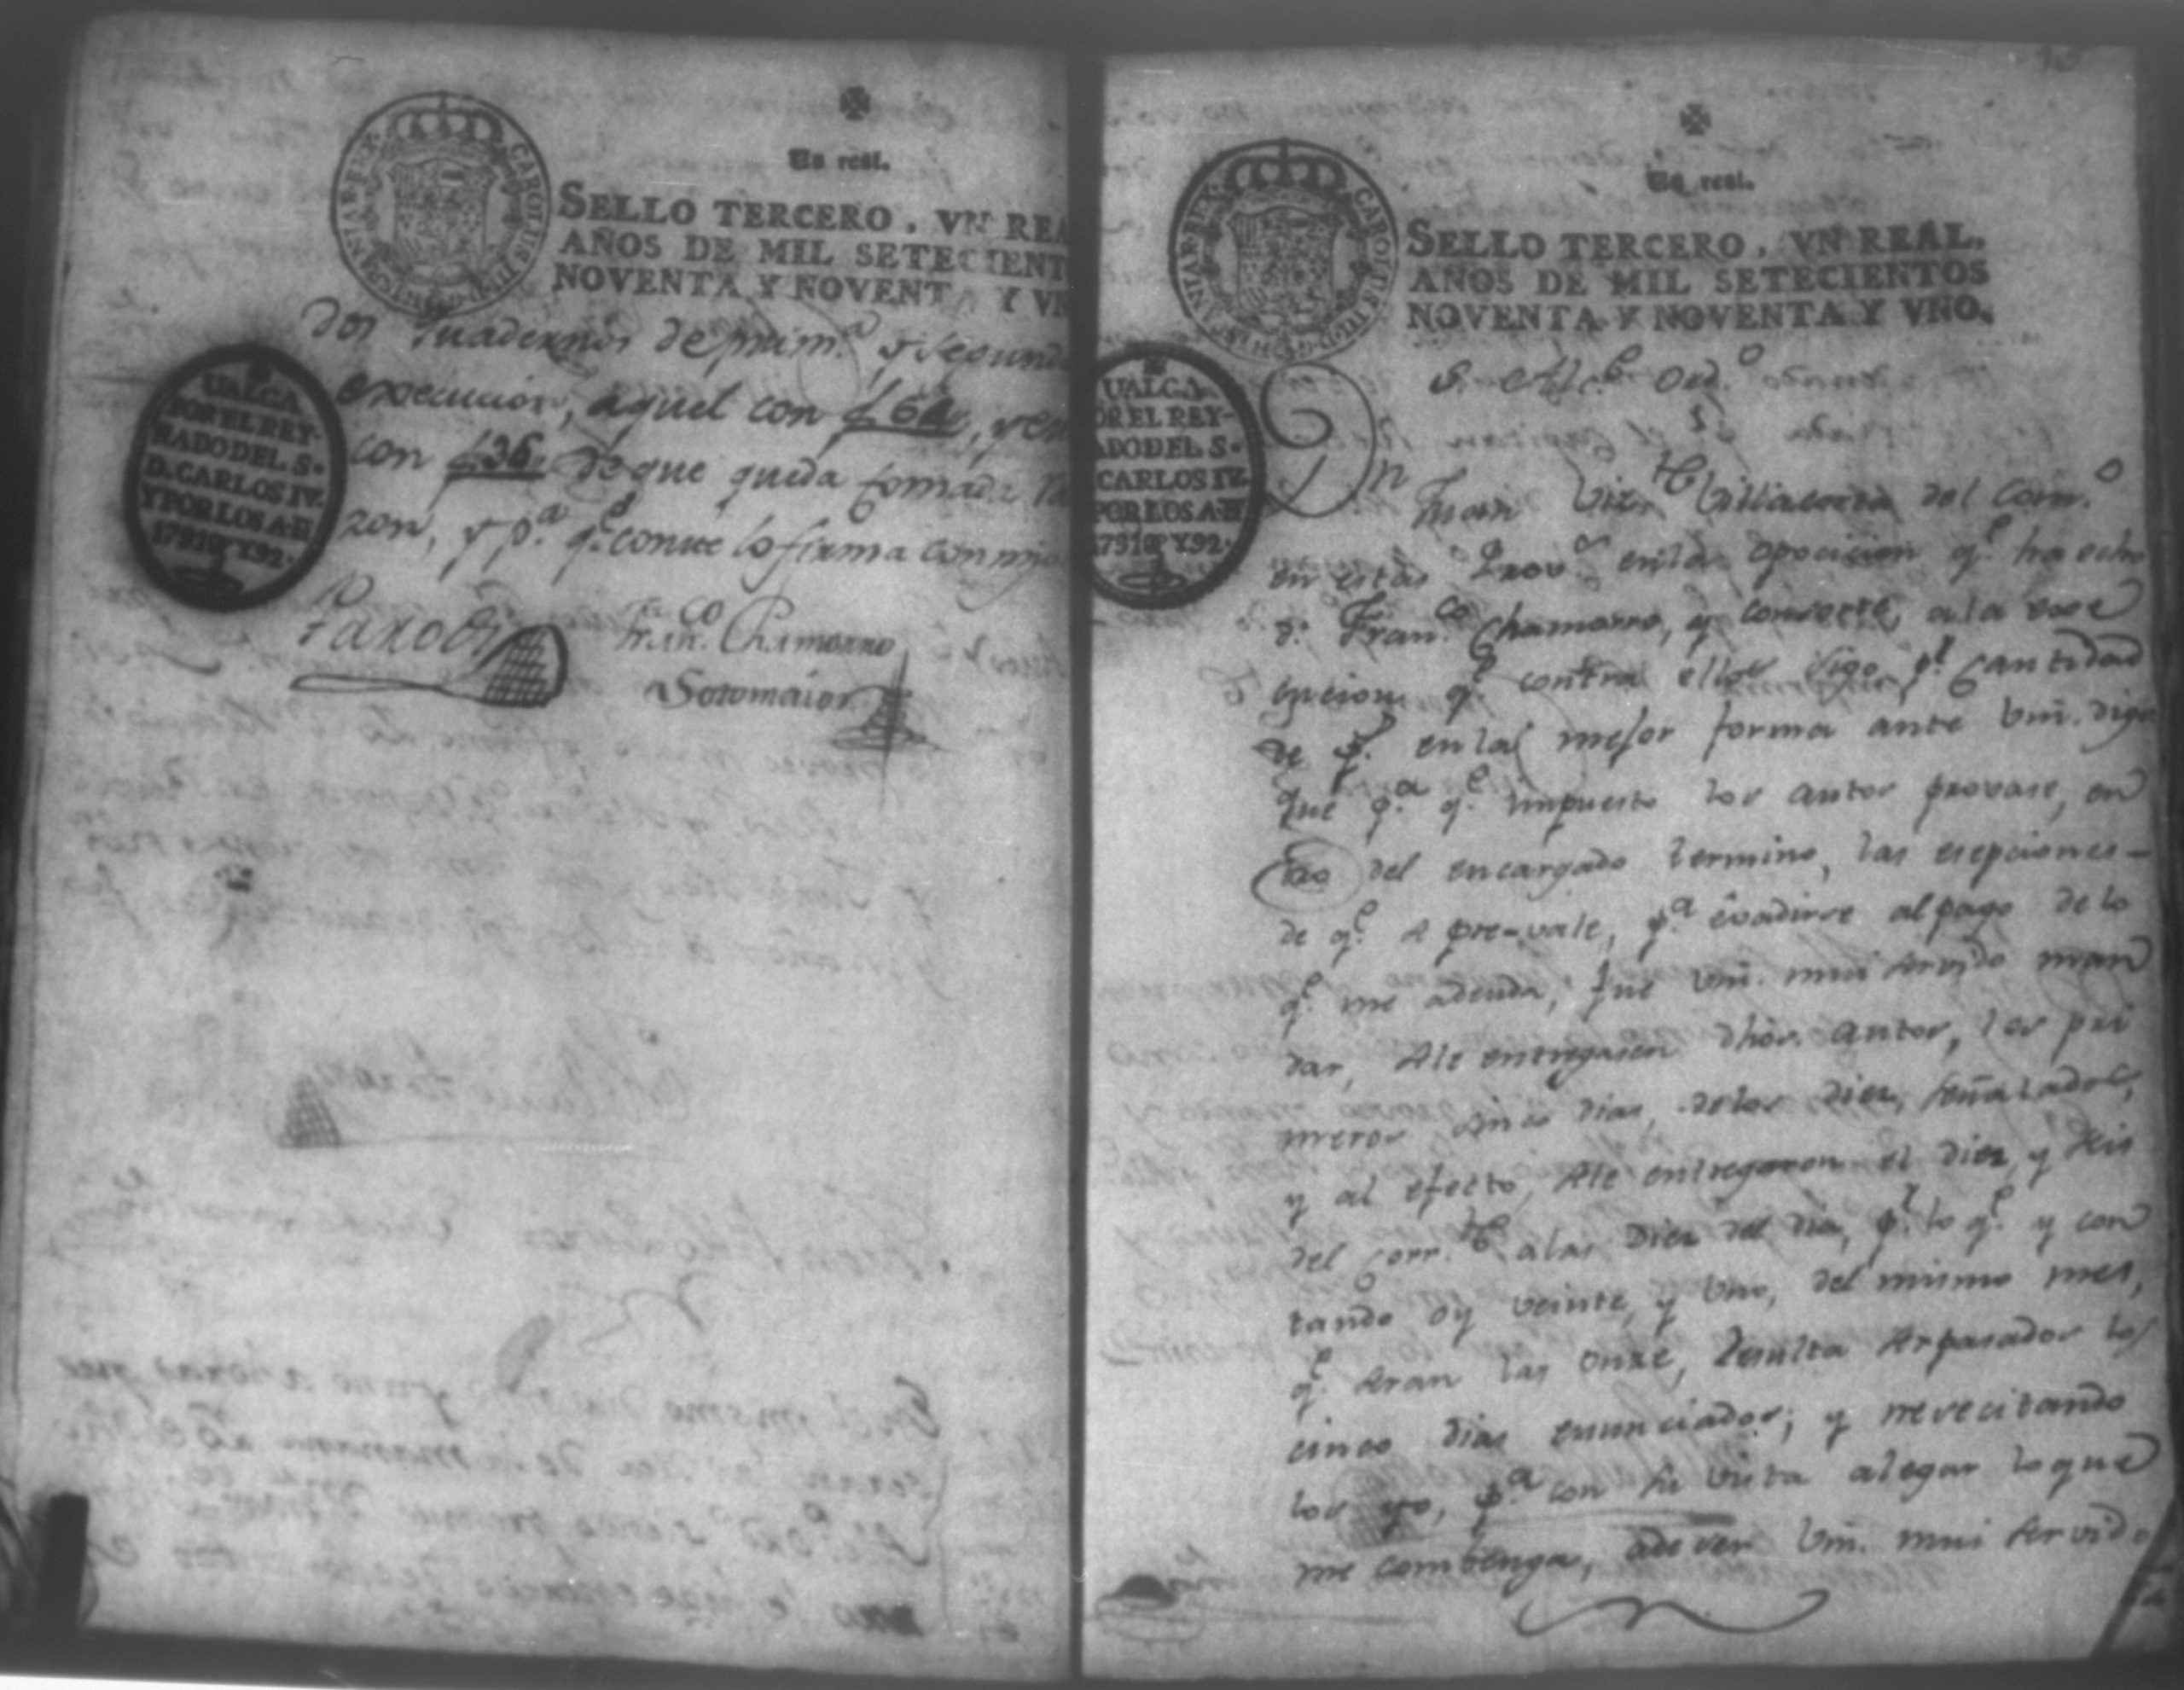 Un real.
SELLO TERCERO, VN REA
AÑOS DE MIL SETECIENT
NOVENTA Y NOVENTA Y VN
dos Cuadernos de prim.ª y segund
execucion, aquel con f 64, y es
con f 36, de que queda tomada ra
zon, y p.ª q.e conste lo firma conmi
Parodi Fran.co Chamorro
Sotomaior
UALGA
POR EL REY-
NADO DEL S.
D. CARLOS IV.
Y POR LOS A.
1791 Y 92.
Un real.
SELLO TERCERO, VN REAL,
AÑOS DE MIL SETECIENTOS
NOVENTA Y NOVENTA Y VNO.
CAROLUS
UALGA
OR EL REY-
ADO DEL S.
CARLOS IV.
POR LOS A.
1791 Y 92.
S. Alc.e Ord.o
Dn Juan Viz.te Villacorta del Com.o
en estas Prov.s en la oposicion q.e ha echo
d.n Fran.co Chamorro, y consorte, a la exe
cucion q.e contra ellos sigo p.r cantidad
de p.s en la mejor forma ante Vm. digo
que p.ª q.e impuesto los autos provase, en
tro del encargado termino, las esepciones
de q.e se pre-vale, p.ª evadirse al pago de lo
q.e me adeuda; fue Vm. mui servido man
dar, se le entregasen dhos. autos, los pri
meros cinco dias, de los diez, señalados,
y al efecto, se le entregaron el diez, y seis
del corr.te a las diez del dia, p.r lo q.e y con
tando oy veinte, y uno, del mismo mes,
q.e seran las onze, resulta ser pasados los
cinco dias enunciados; y nececitando
los yo, p.ª con su vista alegar lo que
me combenga, a de ser Vm. mui servido